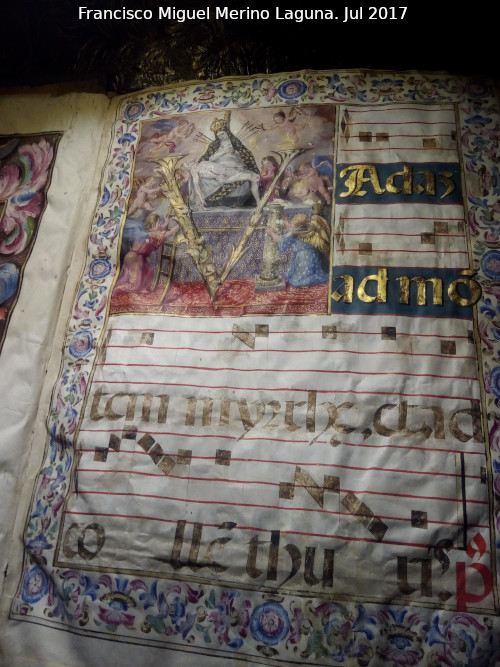 Francisco Miguel Merino Laguna. Jul 2017
V Adaz
ad mō
tem myrrhę, et ad
co llē thu ris. p̄